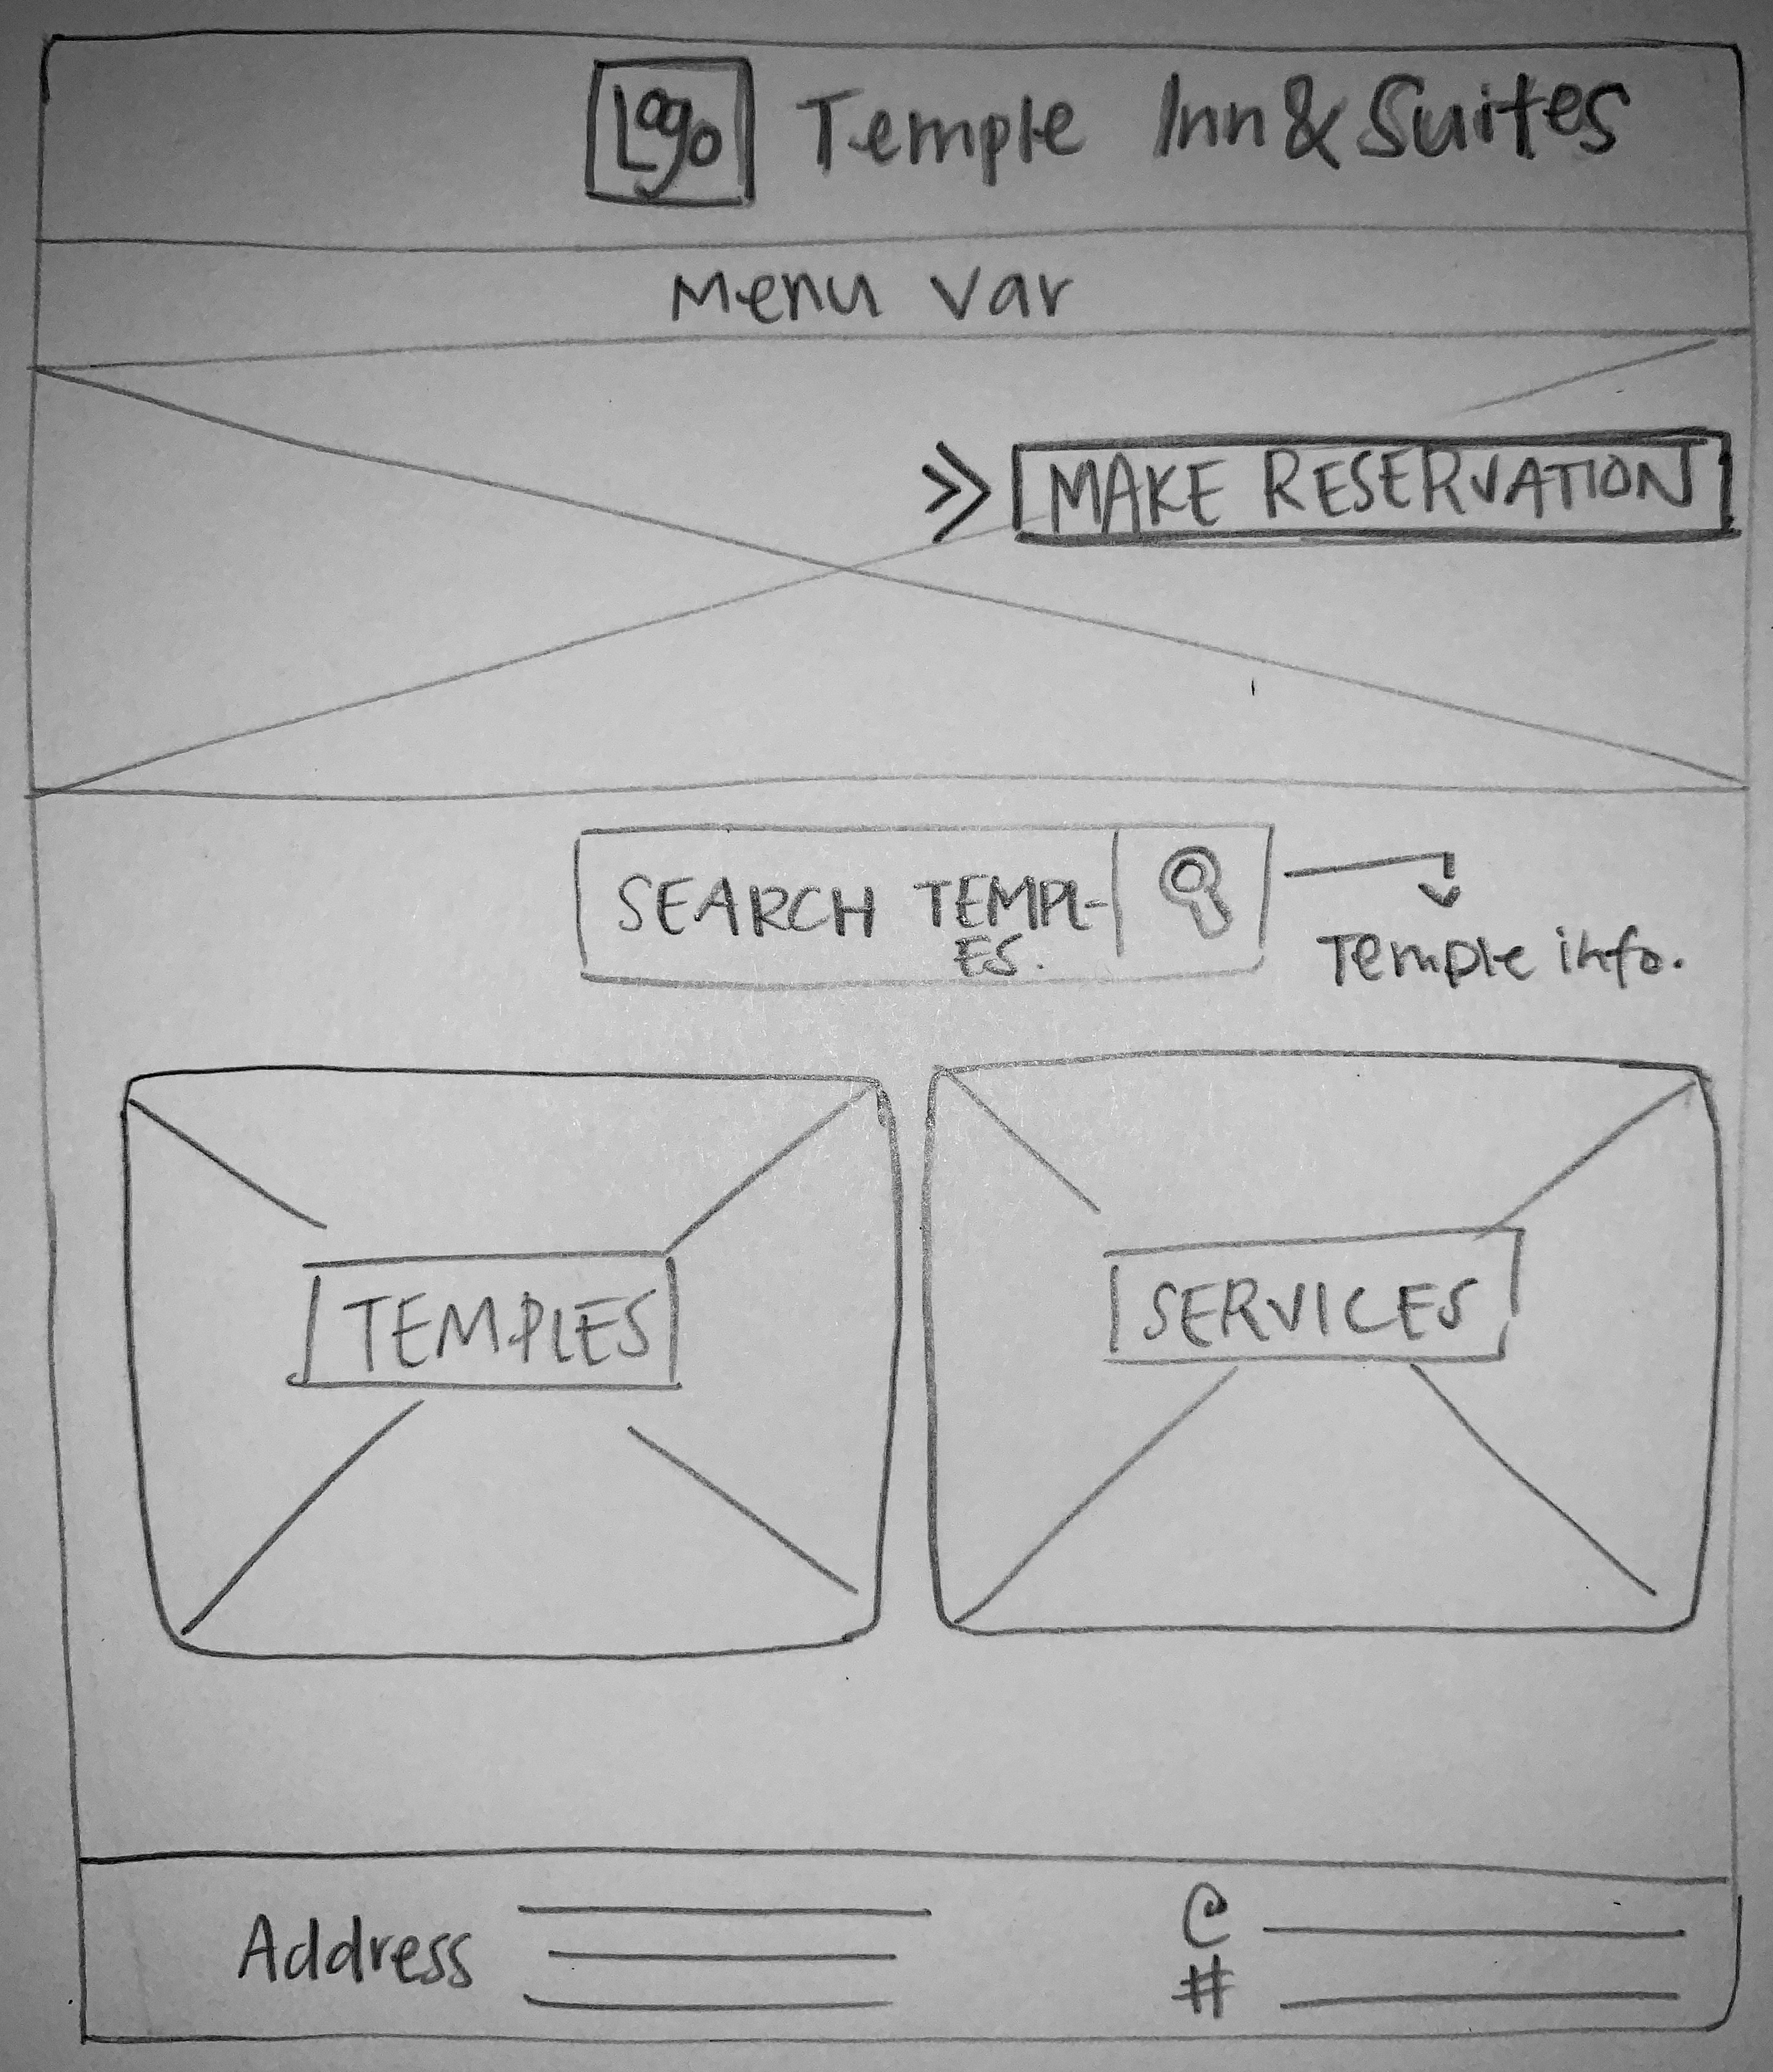 Logo Temple Inn & Suites
Menu Var
>> MAKE RESERVATION
SEARCH TEMPL-
ES.
Temple info.
TEMPLES
SERVICES
Address
@
#